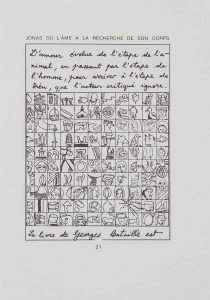 JONAS OU L'ÂME A LA RECHERCHE DE SON CORPS
L'amour évolue de l'étape de l'a-
nimal, en passant par l'étape de
l'homme, pour arriver à l'étape de
Dieu, que l'auteur critique ignore.
Le livre de Georges Bataille est
27